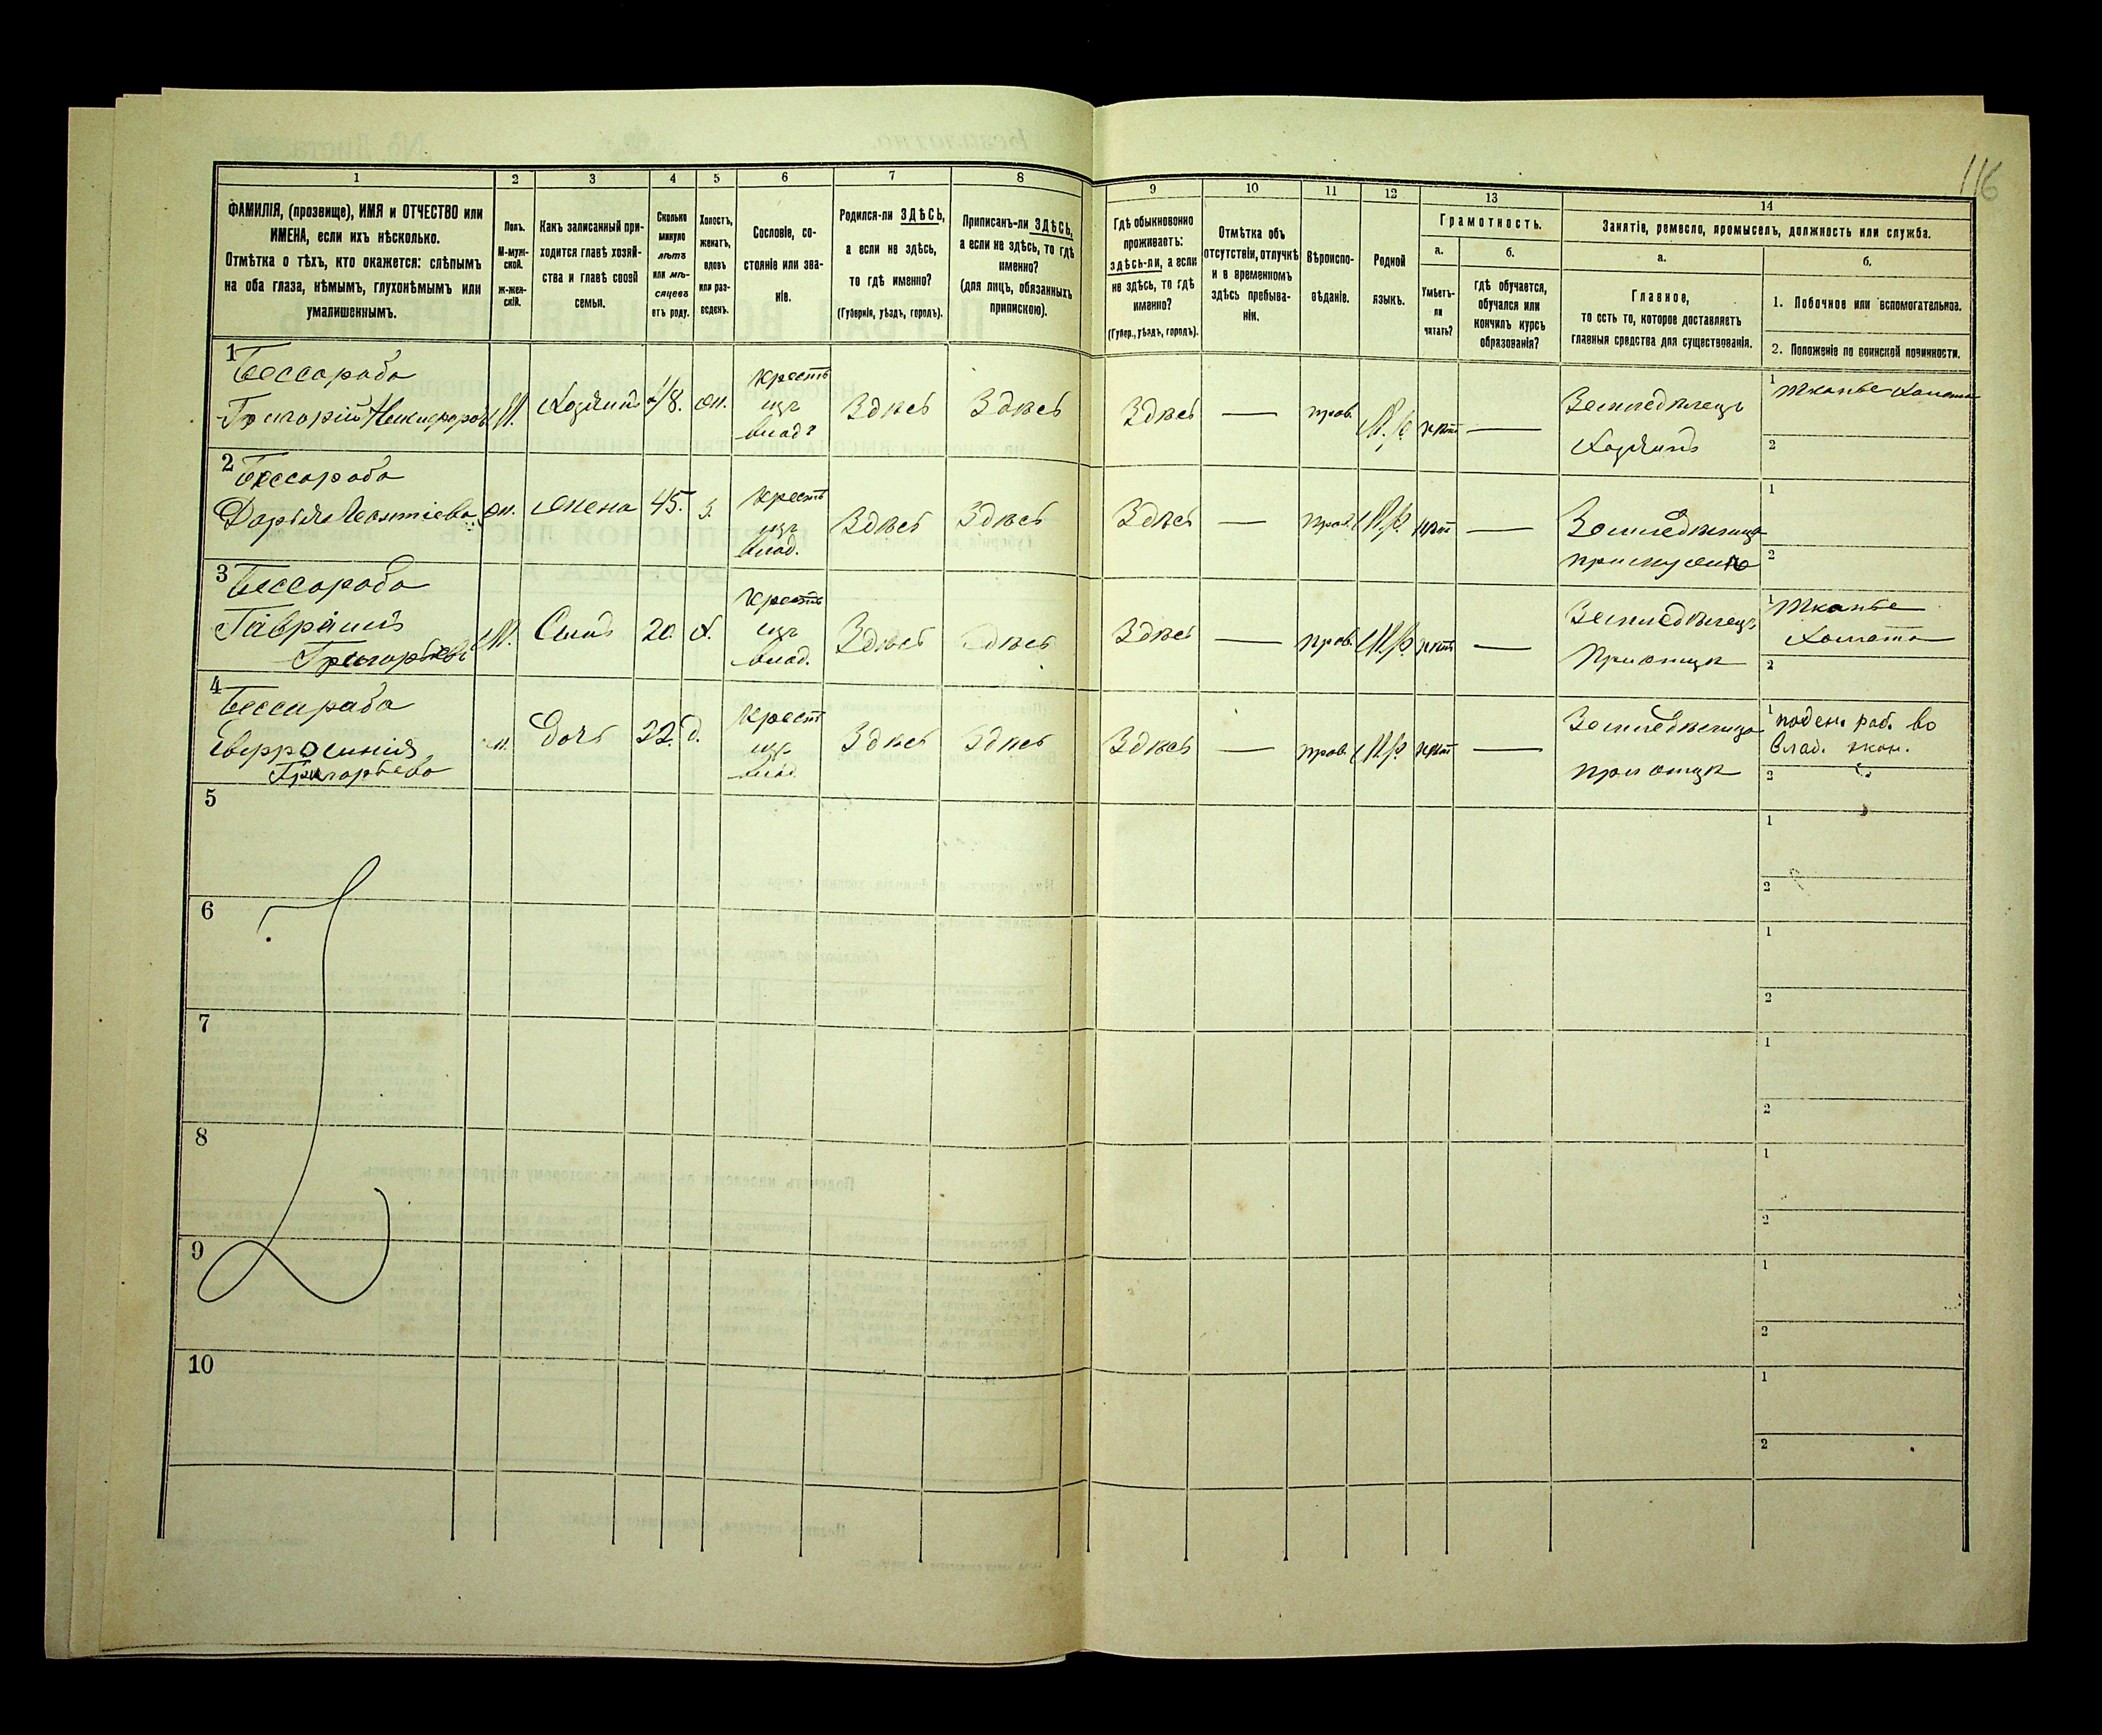 116
1 2 3 4 5 6 7 8 9 10 11 12 13 14
ФАМИЛІЯ, (прозвище), ИМЯ и ОТЧЕСТВО или
ИМЕНА, если ихъ нѣсколько.
Отмѣтка о тѣхъ, кто окажется: слѣпымъ
на оба глаза, нѣмымъ, глухонѣмымъ или
умалишеннымъ.
Полъ.
М-муж-
ской.
ж-жен-
скій.
Какъ записанный при-
ходится главѣ хозяй-
ства и главѣ своей
семьи.
Сколько
минуло
лѣтъ
или мѣ-
сяцевъ
отъ роду.
Холостъ,
женатъ,
вдовъ
или раз-
веденъ.
Сословіе, со-
стояніе или зва-
ніе.
Родился-ли ЗДѢСЬ,
а если не здѣсь,
то гдѣ именно?
(Губернія, уѣздъ, городъ).
Приписанъ-ли ЗДѢСЬ,
а если не здѣсь, то гдѣ
именно?
(для лицъ, обязанныхъ
припискою).
Гдѣ обыкновенно
проживаетъ:
здѣсь-ли, а если
не здѣсь, то гдѣ
именно?
(Губер., уѣздъ, городъ).
Отмѣтка объ
отсутствіи, отлучкѣ
и о временномъ
здѣсь пребыва-
ніи.
Вѣроиспо-
вѣданіе.
Родной
языкъ.
Грамотность.
а.
Умѣетъ-
ли
читать?
б.
гдѣ обучается,
обучался или
кончилъ курсъ
образованія?
Занятіе, ремесло, промыселъ, должность или служба.
а.
Главное,
то есть то, которое доставляетъ
главныя средства для существованія.
б.
1. Побочное или вспомогательное.
2. Положеніе по воинской повинности.
1
Бессараба
Григорій Никифоровъ
М. Хозяинъ 48. жн.
Крест
изъ
влад
Здѣсь Здѣсь Здѣсь — прав. М.р. нѣт —
Земледѣлецъ
Хозяинъ
1 Тканье холста
2
2
Бессараба
Дарья Леонтіева
жн. жена 45. з.
Крест
изъ
влад.
Здѣсь Здѣсь Здѣсь — прав. М.р. нѣт —
Земледѣлица
при мужѣ
1
2
3
Бессараба
Гавріилъ
Григорьевъ
М. Сынъ 20 х.
Крест
изъ
влад.
Здѣсь Здѣсь Здѣсь — прав. М.р. нѣт —
Земледѣлецъ
При отцѣ
1 Тканье
холста
2
4
Бессараба
Евфросинія
Григорьева
ж. Дочь 22. д.
Крест
изъ
влад
Здѣсь Здѣсь Здѣсь — прав. М.р. нѣт —
Земледѣлица
при отцѣ
1 поден. раб. во
влад. экон.
2
5
1
2
6
1
2
7
1
2
8
1
2
9
1
2
10
1
2